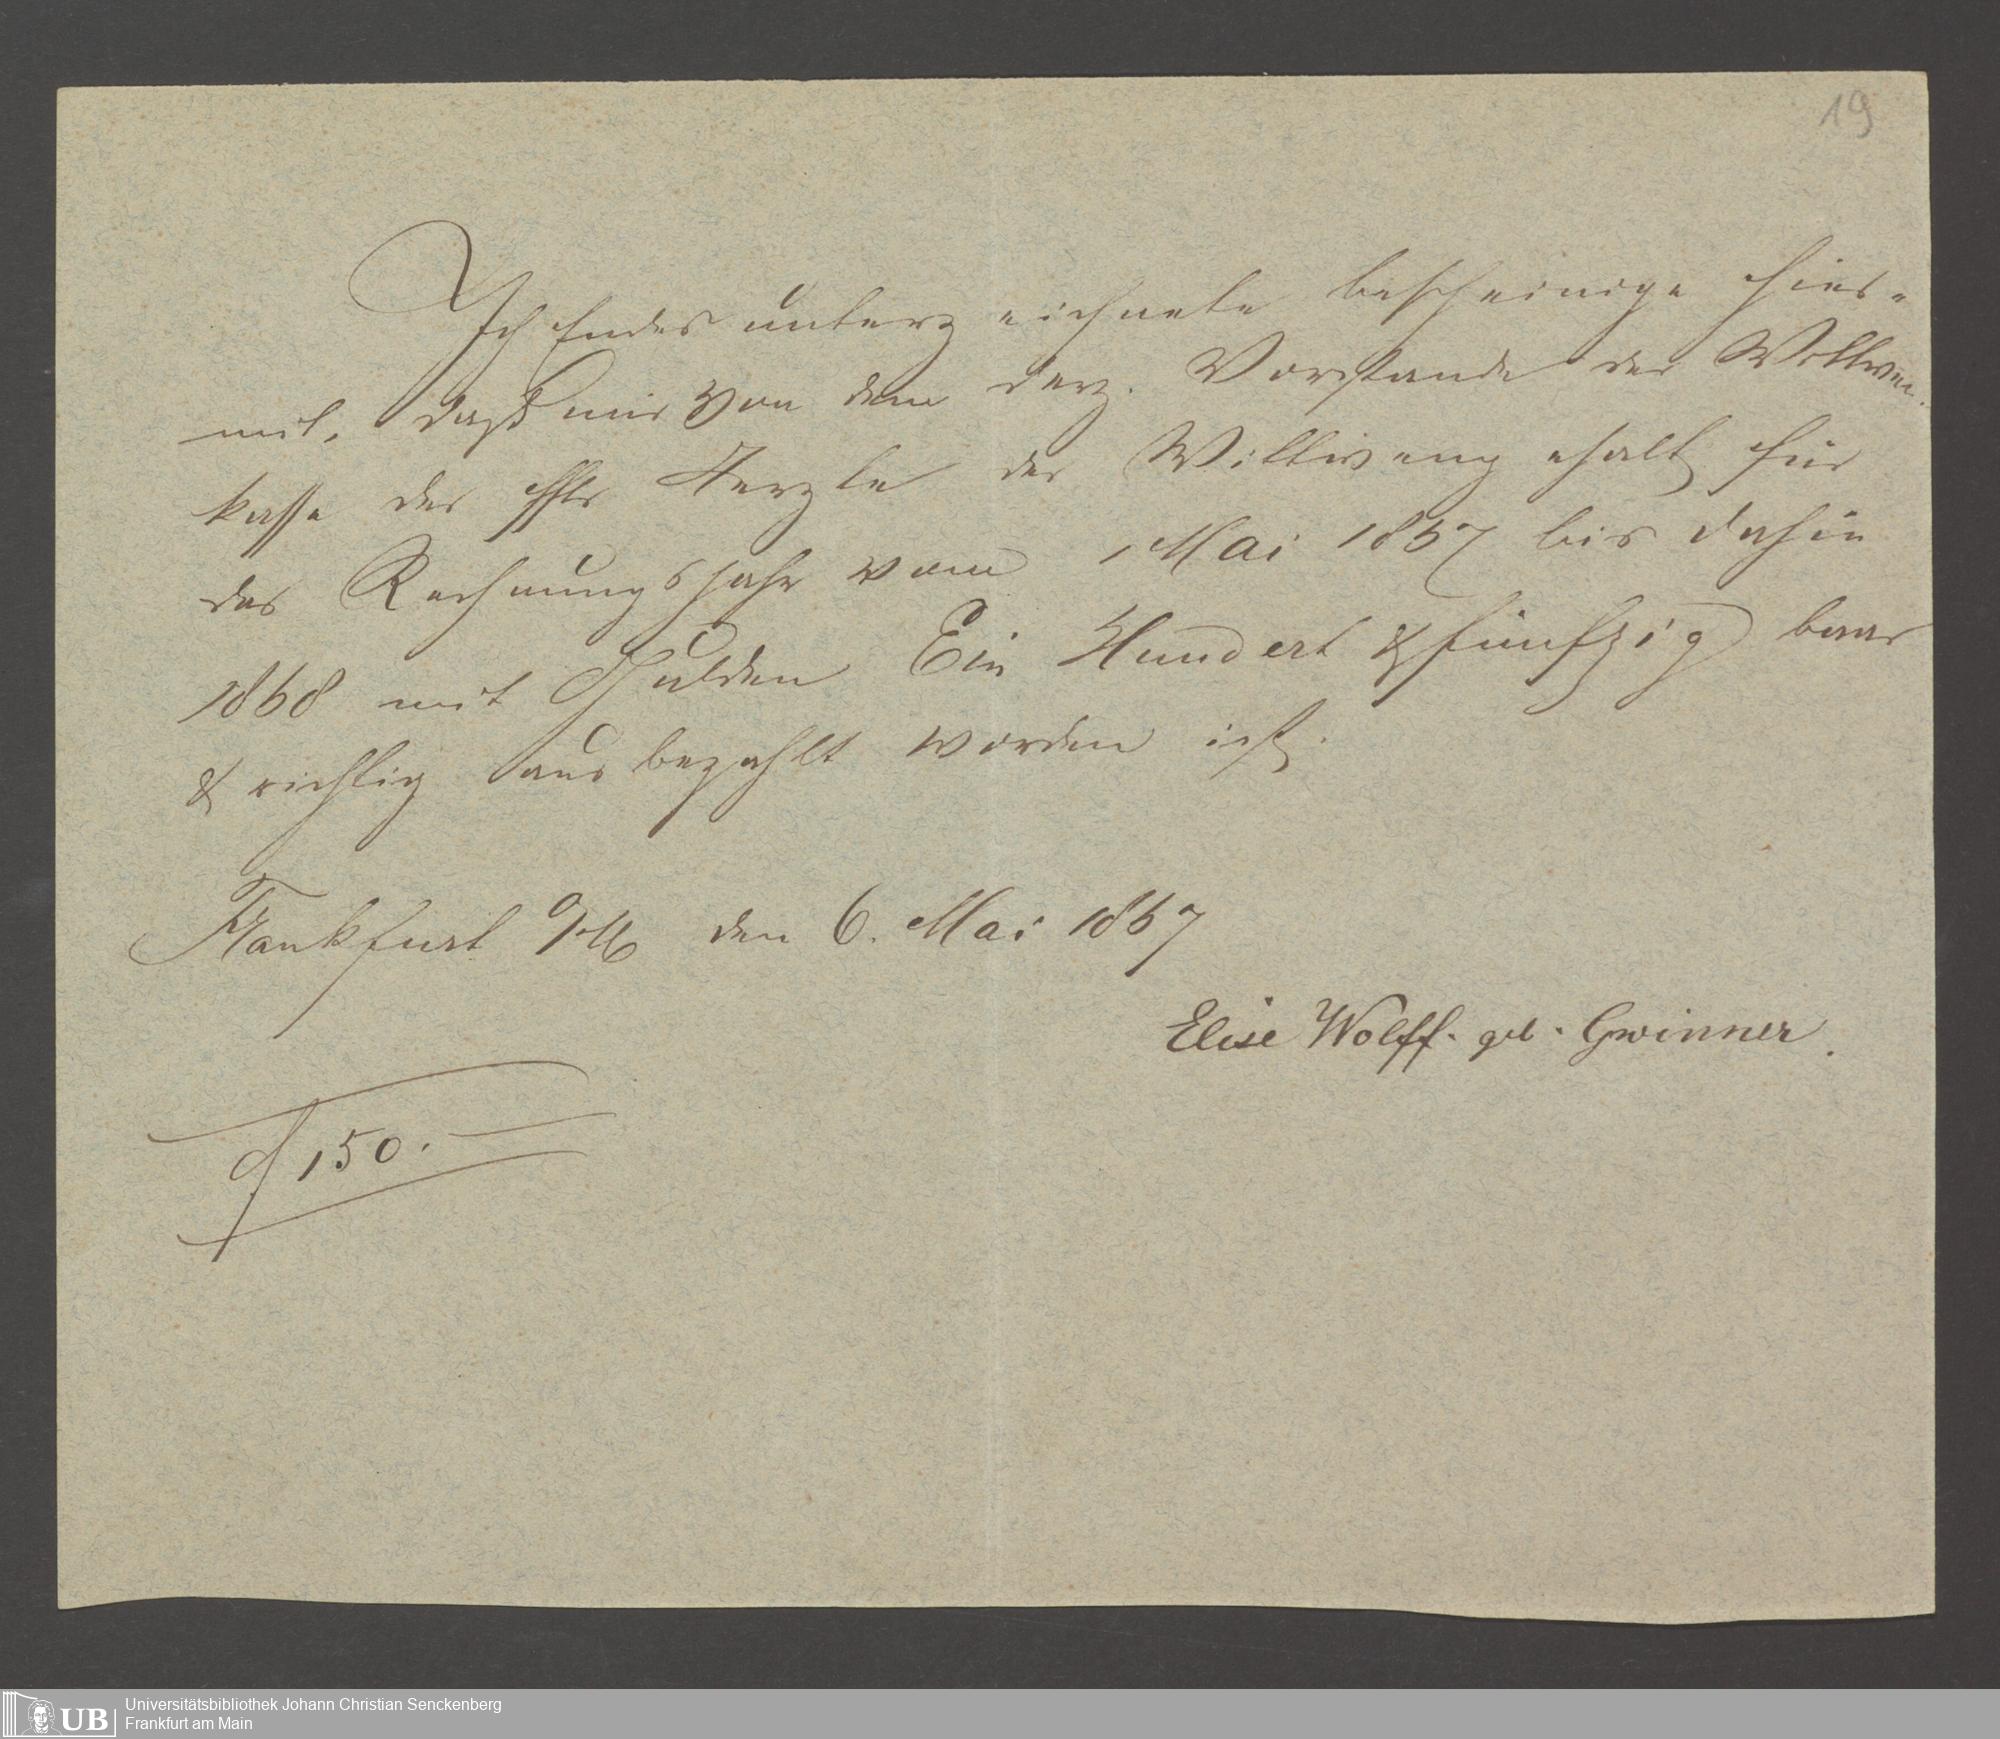 19
Ich Endes unterzeichnete bescheinige hier=
mit, daß mir von dem derz. Vorstande der Wittwen
kasse der Aerzte der Wittwengehalt für
das Rechnungsjahr vom 1 Mai 1867 bis dahin
1868 mit Gulden Ein Hundert & fünfzig baar
& richtig ausbezahlt worden ist.
Frankfurt a/M den 6. Mai 1867
Elise Wolff. geb. Gwinner.
f 150. —
UB Universitätsbibliothek Johann Christian Senckenberg
Frankfurt am Main